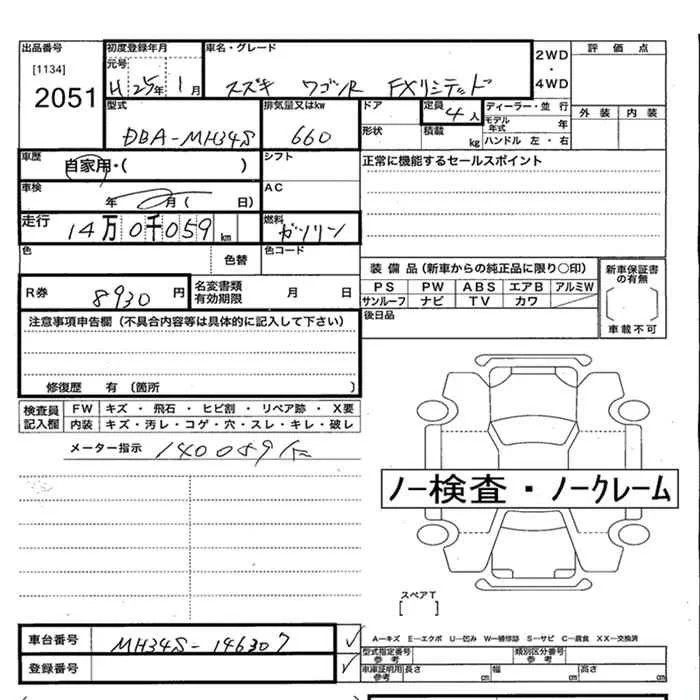 出品番号 初度登録年月 車名・グレード 2WD ・ 4WD 評価点
[1134] 元号
2051 H 25年 1月 スズキ ワゴンR FXリミテッド
型式 排気量又はkw ドア 定員 4人 ディーラー・並行 外装 内装
モデル年式 年
DBA-MH34S 660 形状 積載 kg ハンドル 左・右
車歴 自家用・( ) シフト 正常に機能するセールスポイント
車検 年 月( 日) AC
走行 14万0千059km 燃料 ガソリン
色 色替 色コード
装備品(新車からの純正品に限り○印) 新車保証書の有無
PS PW ABS エアB アルミW
サンルーフ ナビ TV カワ
R券 8930円 名変書類有効期限 月 日
後日品 車載不可
注意事項申告欄(不具合内容等は具体的に記入して下さい)
修復歴 有 (箇所 )
検査員記入欄 FW キズ・飛石・ヒビ割・リペア跡・X要
内装 キズ・汚レ・コゲ・穴・スレ・キレ・破レ
メーター指示 140059K
ノー検査・ノークレーム
スペアT
[ ]
車台番号 MH34S-146307 ✓
A－キズ E－エクボ U－凹み W－補修跡 S－サビ C－腐食 XX－交換済
型式指定番号 参考 類別区分番号 参考
登録番号 ✓ 車庫証明用参考 長さ cm 幅 cm 高さ cm